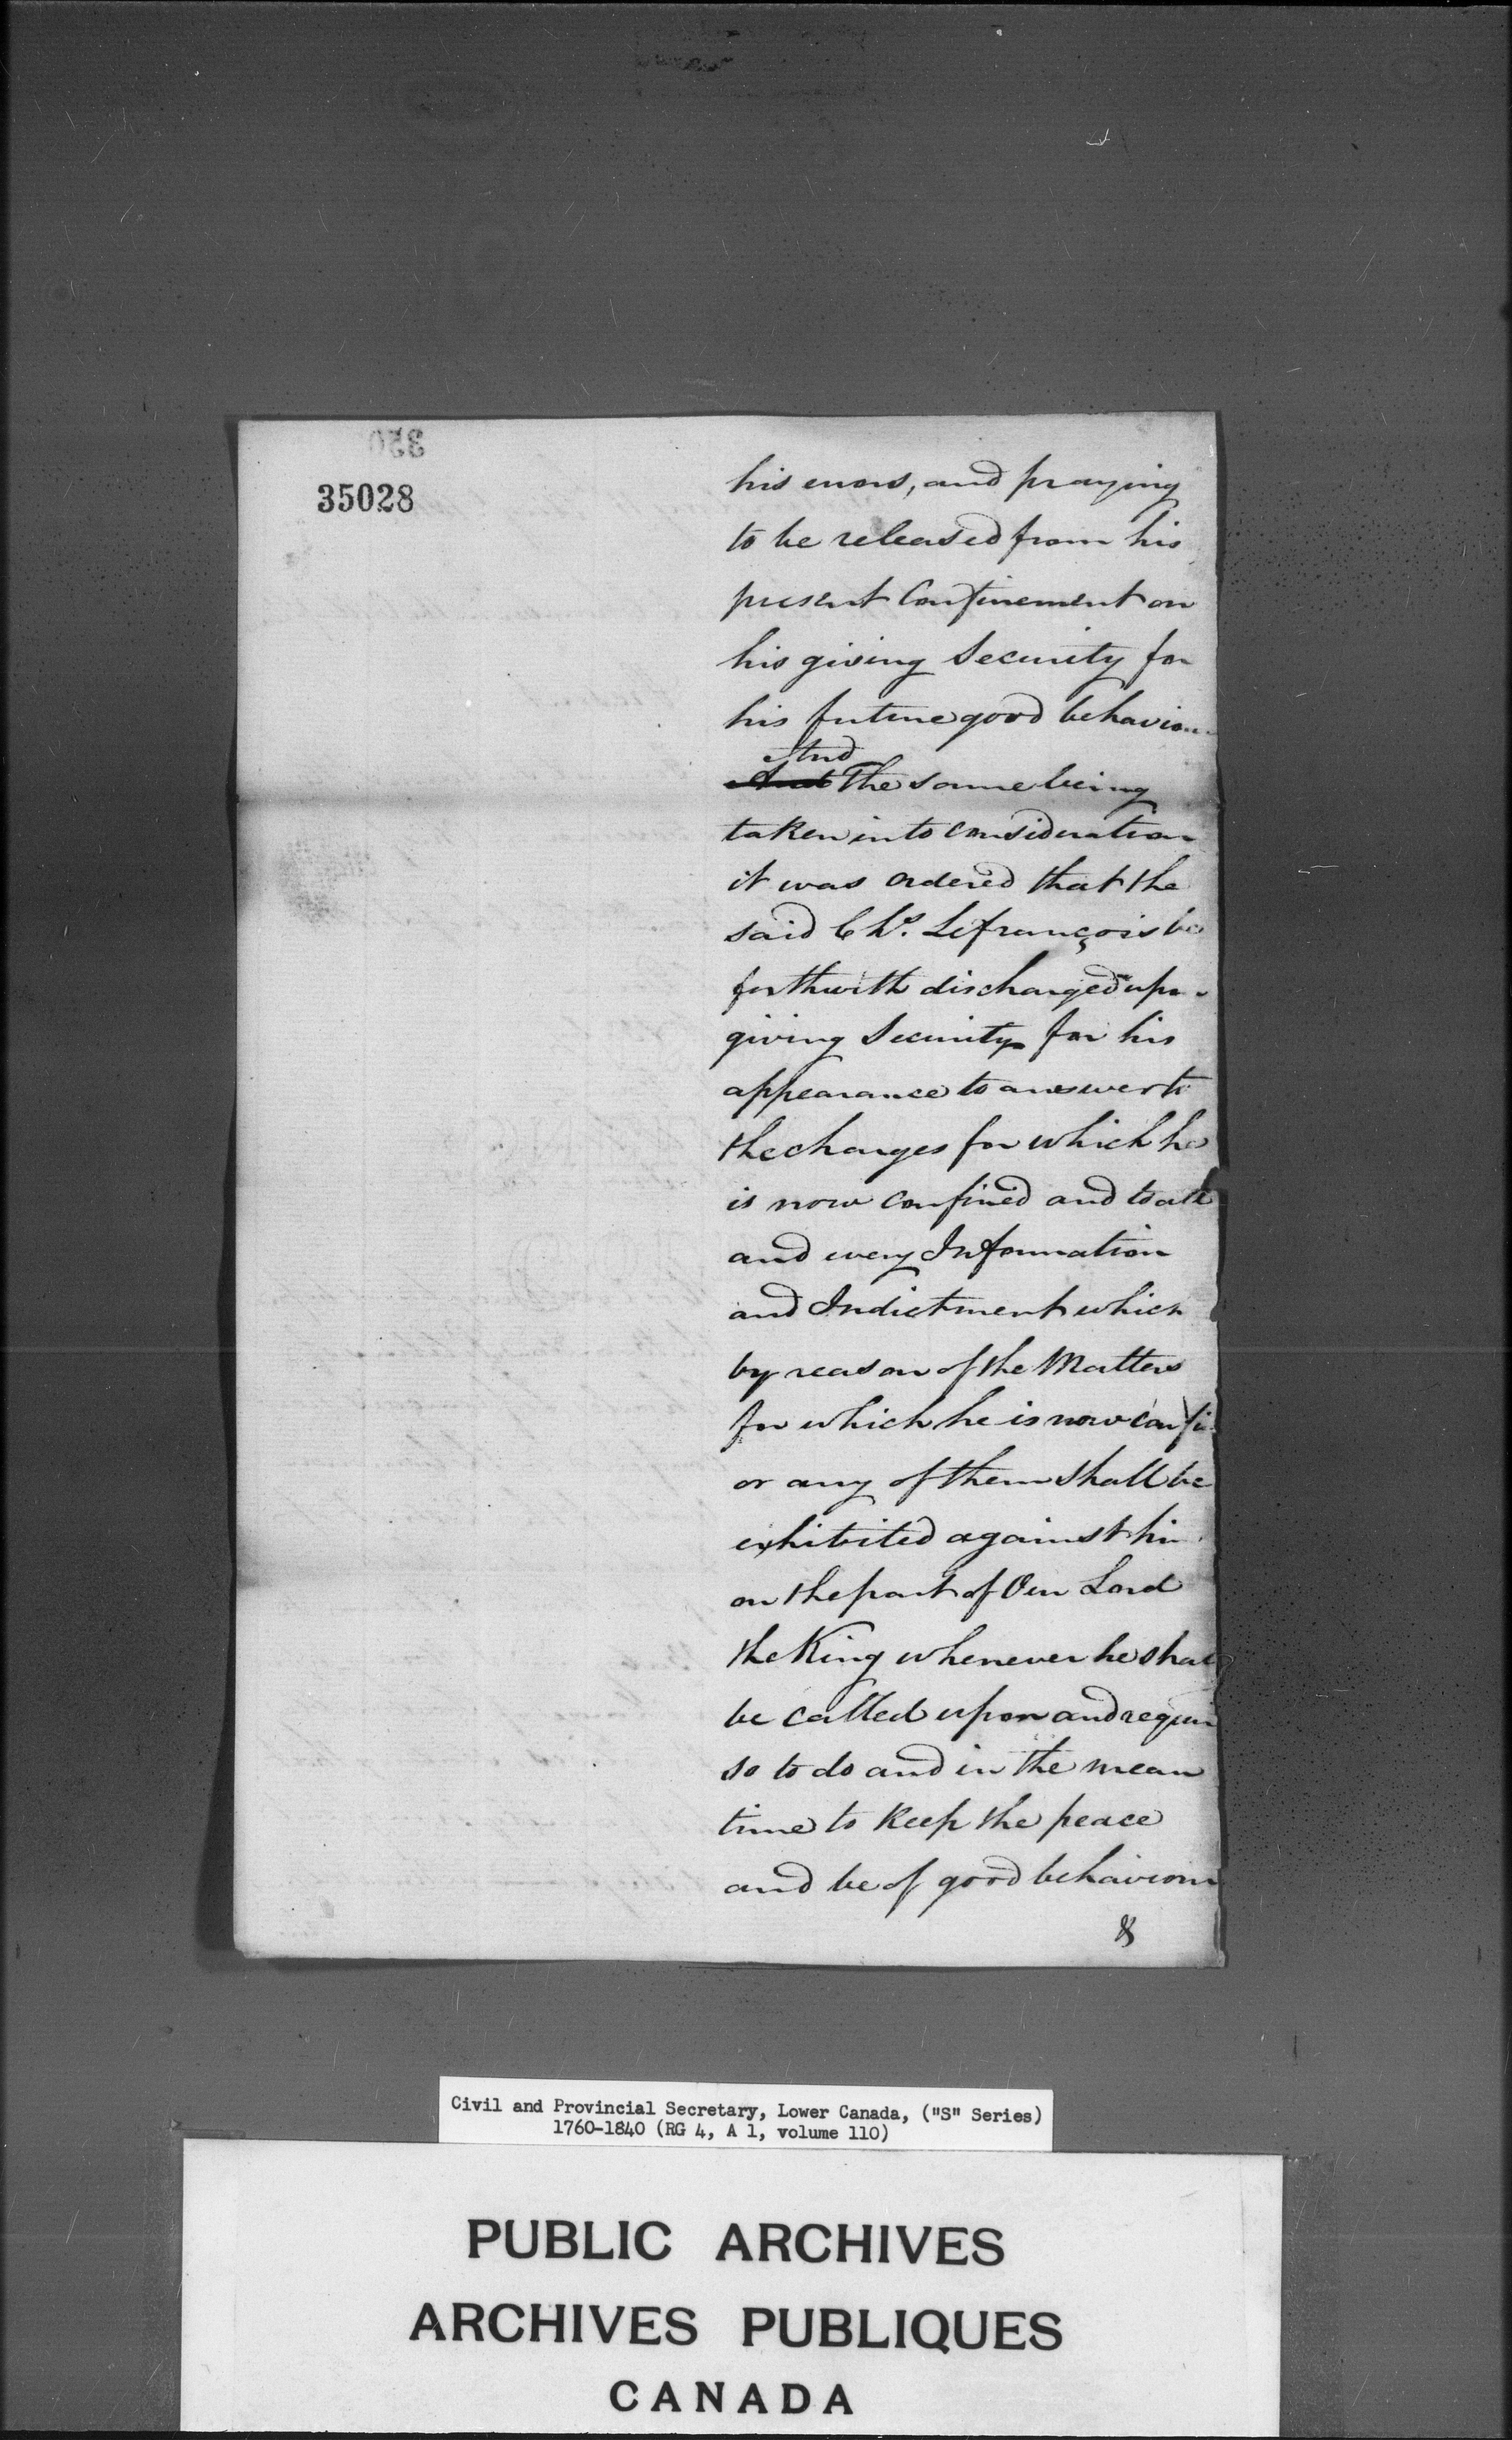 35028
his errors, and praying
to be released from his
present Confinement on
his giving Security for
his future good behaviour
And
And The same being
taken into consideration
it was ordered that the
said Chs. Lefrançois be
forthwith discharged upon
giving Security for his
appearance to answer to
the charges for which he
is now confined and to all
and every Information
and Indictment which
by reason of the Matters
for which he is now confi
or any of them shall be
exhibited against him
on the part of Our Lord
the King whenever he shall
be called upon and requir
so to do and in the mean
time to Keep the peace
and be of good behaviour
&
Civil and Provincial Secretary, Lower Canada, ("S" Series)
1760-1840 (RG 4, A 1, volume 110)
PUBLIC ARCHIVES
ARCHIVES PUBLIQUES
CANADA